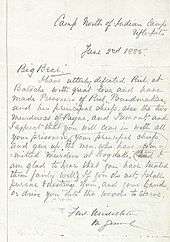 Camp North of Indian Camp
June 2nd 1885
Big Bear.
I have utterly defeated Riel, at
Batoche with great loss and have
made Prisoners of Riel, Poundmaker
and his principal chief, also the two
murderers of Payne, and Fremont and
I expect that you will come in with all
your prisoners, your principal chiefs
and give up the men, who have com-
mitted murders at Frog Lake, I
am glad to hear that you have treated
them fairly well, if you do not, I shall
pursue & destroy you, and your band
or drive you into the woods to starve.
Fred Middleton
M. General